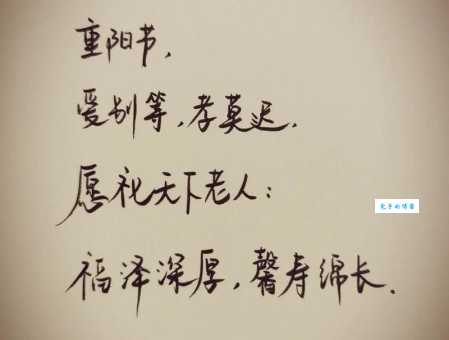 重阳节,
爱别等,孝莫迟.
愿祝天下老人:
福泽深厚,馨寿绵长.